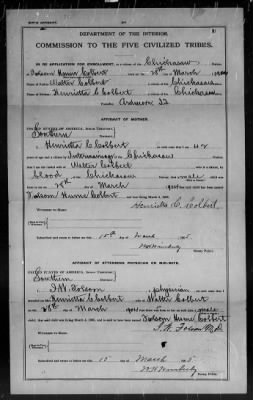 DEPARTMENT OF THE INTERIOR,
COMMISSION TO THE FIVE CIVILIZED TRIBES.
IN RE APPLICATION FOR ENROLLMENT, as a citizen of the Chickasaw Nation,
of Folsom Hume Colbert, born on the 28th day of March, 190
Name of Father: Walter Colbert a citizen of the Chickasaw Nation.
Name of Mother: Henrietta C Colbert a citizen of the Chickasaw Nation.
Ardmore I.T.
AFFIDAVIT OF MOTHER.
UNITED STATES OF AMERICA, INDIAN TERRITORY,
Southern District.
I, Henrietta C Colbert, on oath state that I am
years of age and a citizen by Intermarriage, of the Chickasaw Nation;
that I am the lawful wife of Walter Colbert, who is a citizen, by
blood of the Chickasaw Nation; that a male child was
born to me on 28th day of March
Folsom Hume Colbert, and was living March 4, 1905.
Henrietta C. Colbert
WITNESSES TO MARK:
Subscribed and sworn to before me this 15th day of March, 1905
Notary Public.
AFFIDAVIT OF ATTENDING PHYSICIAN OR MID-WIFE.
UNITED STATES OF AMERICA, INDIAN TERRITORY,
Southern District.
I, J.W. Folsom, a physician, on oath state that I
attended on Mrs. Henrietta C Colbert, wife of Walter Colbert
on the 28th day of March; that there was born to her on said date a male
child; that said child was living March 4, 1905, and is said to have been named Folsom Hume Colbert
WITNESSES TO MARK:
Subscribed and sworn to before me this 15 day of March, 1905
Notary Public.